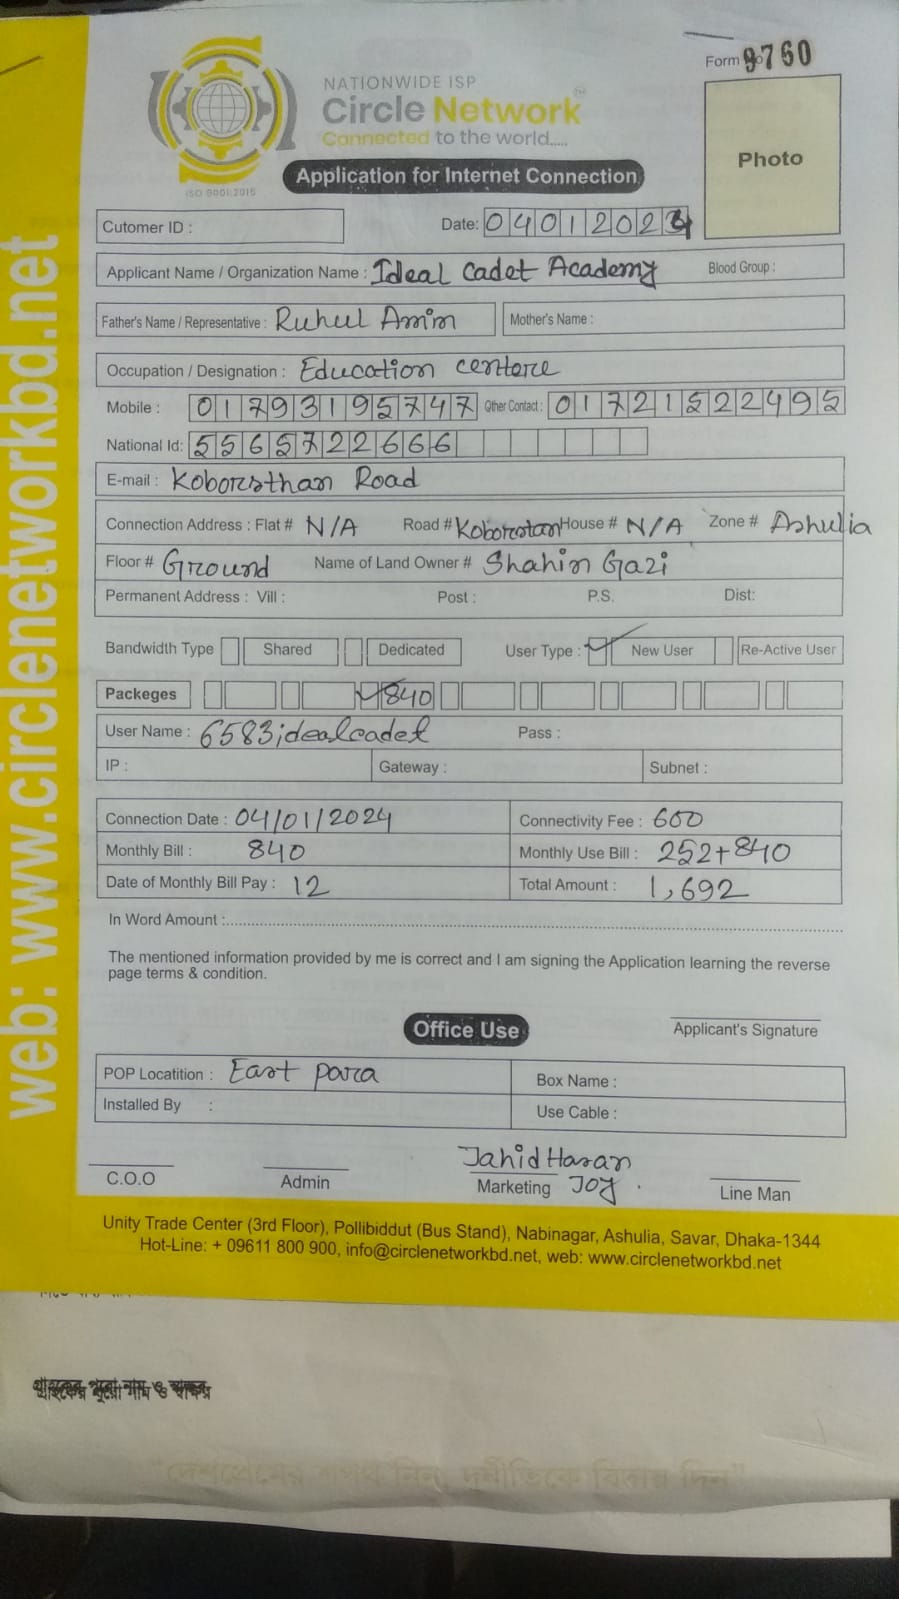 Form 9760
NATIONWIDE ISP
Circle Network™
Connected to the world.....
ISO 9001:2015
Application for Internet Connection
Photo
Cutomer ID :
Date: 04012024
Applicant Name / Organization Name : Ideal Cadet Academy Blood Group :
Father's Name / Representative : Ruhul Amin Mother's Name :
Occupation / Designation : Education centere
Mobile : 01793195747 Other Contact : 01721522495
National Id: 5565722666
E-mail : Koborsthan Road
Connection Address : Flat # N/A Road # Koborstan House # N/A Zone # Ashulia
Floor # Ground Name of Land Owner # Shahin Gazi
Permanent Address : Vill : Post : P.S. Dist:
Bandwidth Type Shared Dedicated User Type : New User Re-Active User
Packeges 840
User Name : 6583idealcadet Pass :
IP : Gateway : Subnet :
Connection Date : 04/01/2024 Connectivity Fee : 600
Monthly Bill : 840 Monthly Use Bill : 252+840
Date of Monthly Bill Pay : 12 Total Amount : 1,692
In Word Amount :
The mentioned information provided by me is correct and I am signing the Application learning the reverse
page terms & condition.
Office Use
Applicant's Signature
POP Locatition : East para Box Name :
Installed By : Use Cable :
Jahid Hasan
C.O.O Admin Marketing Joy . Line Man
Unity Trade Center (3rd Floor), Pollibiddut (Bus Stand), Nabinagar, Ashulia, Savar, Dhaka-1344
Hot-Line: + 09611 800 900, info@circlenetworkbd.net, web: www.circlenetworkbd.net
web: www.circlenetworkbd.net
"দেশপ্রেমের শপথ নিন, দুর্নীতিকে বিদায় দিন"